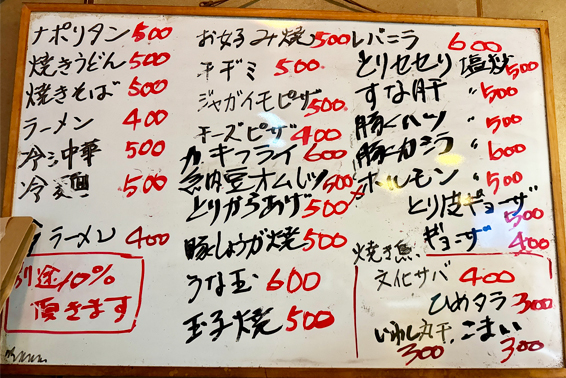 ナポリタン 500
焼きうどん 500
焼きそば 500
ラーメン 400
冷シ中華 500
冷麺 500
ラーメン 400
別途10%
頂きます
お好み焼 500
チヂミ 500
ジャガイモピザ 500
チーズピザ 400
カキフライ 600
納豆オムレツ 500
とりからあげ 500
豚しょうが焼 500
うな玉 600
玉子焼 500
レバニラ 600
とりセセリ塩焼 500
すな肝 〃 500
豚ハツ 〃 500
豚カシラ 〃 600
ホルモン 〃 500
とり皮ギョーザ 500
ギョーザ 400
焼き魚
文化サバ 400
ひめタラ 300
いわし丸干 300
こまい 300